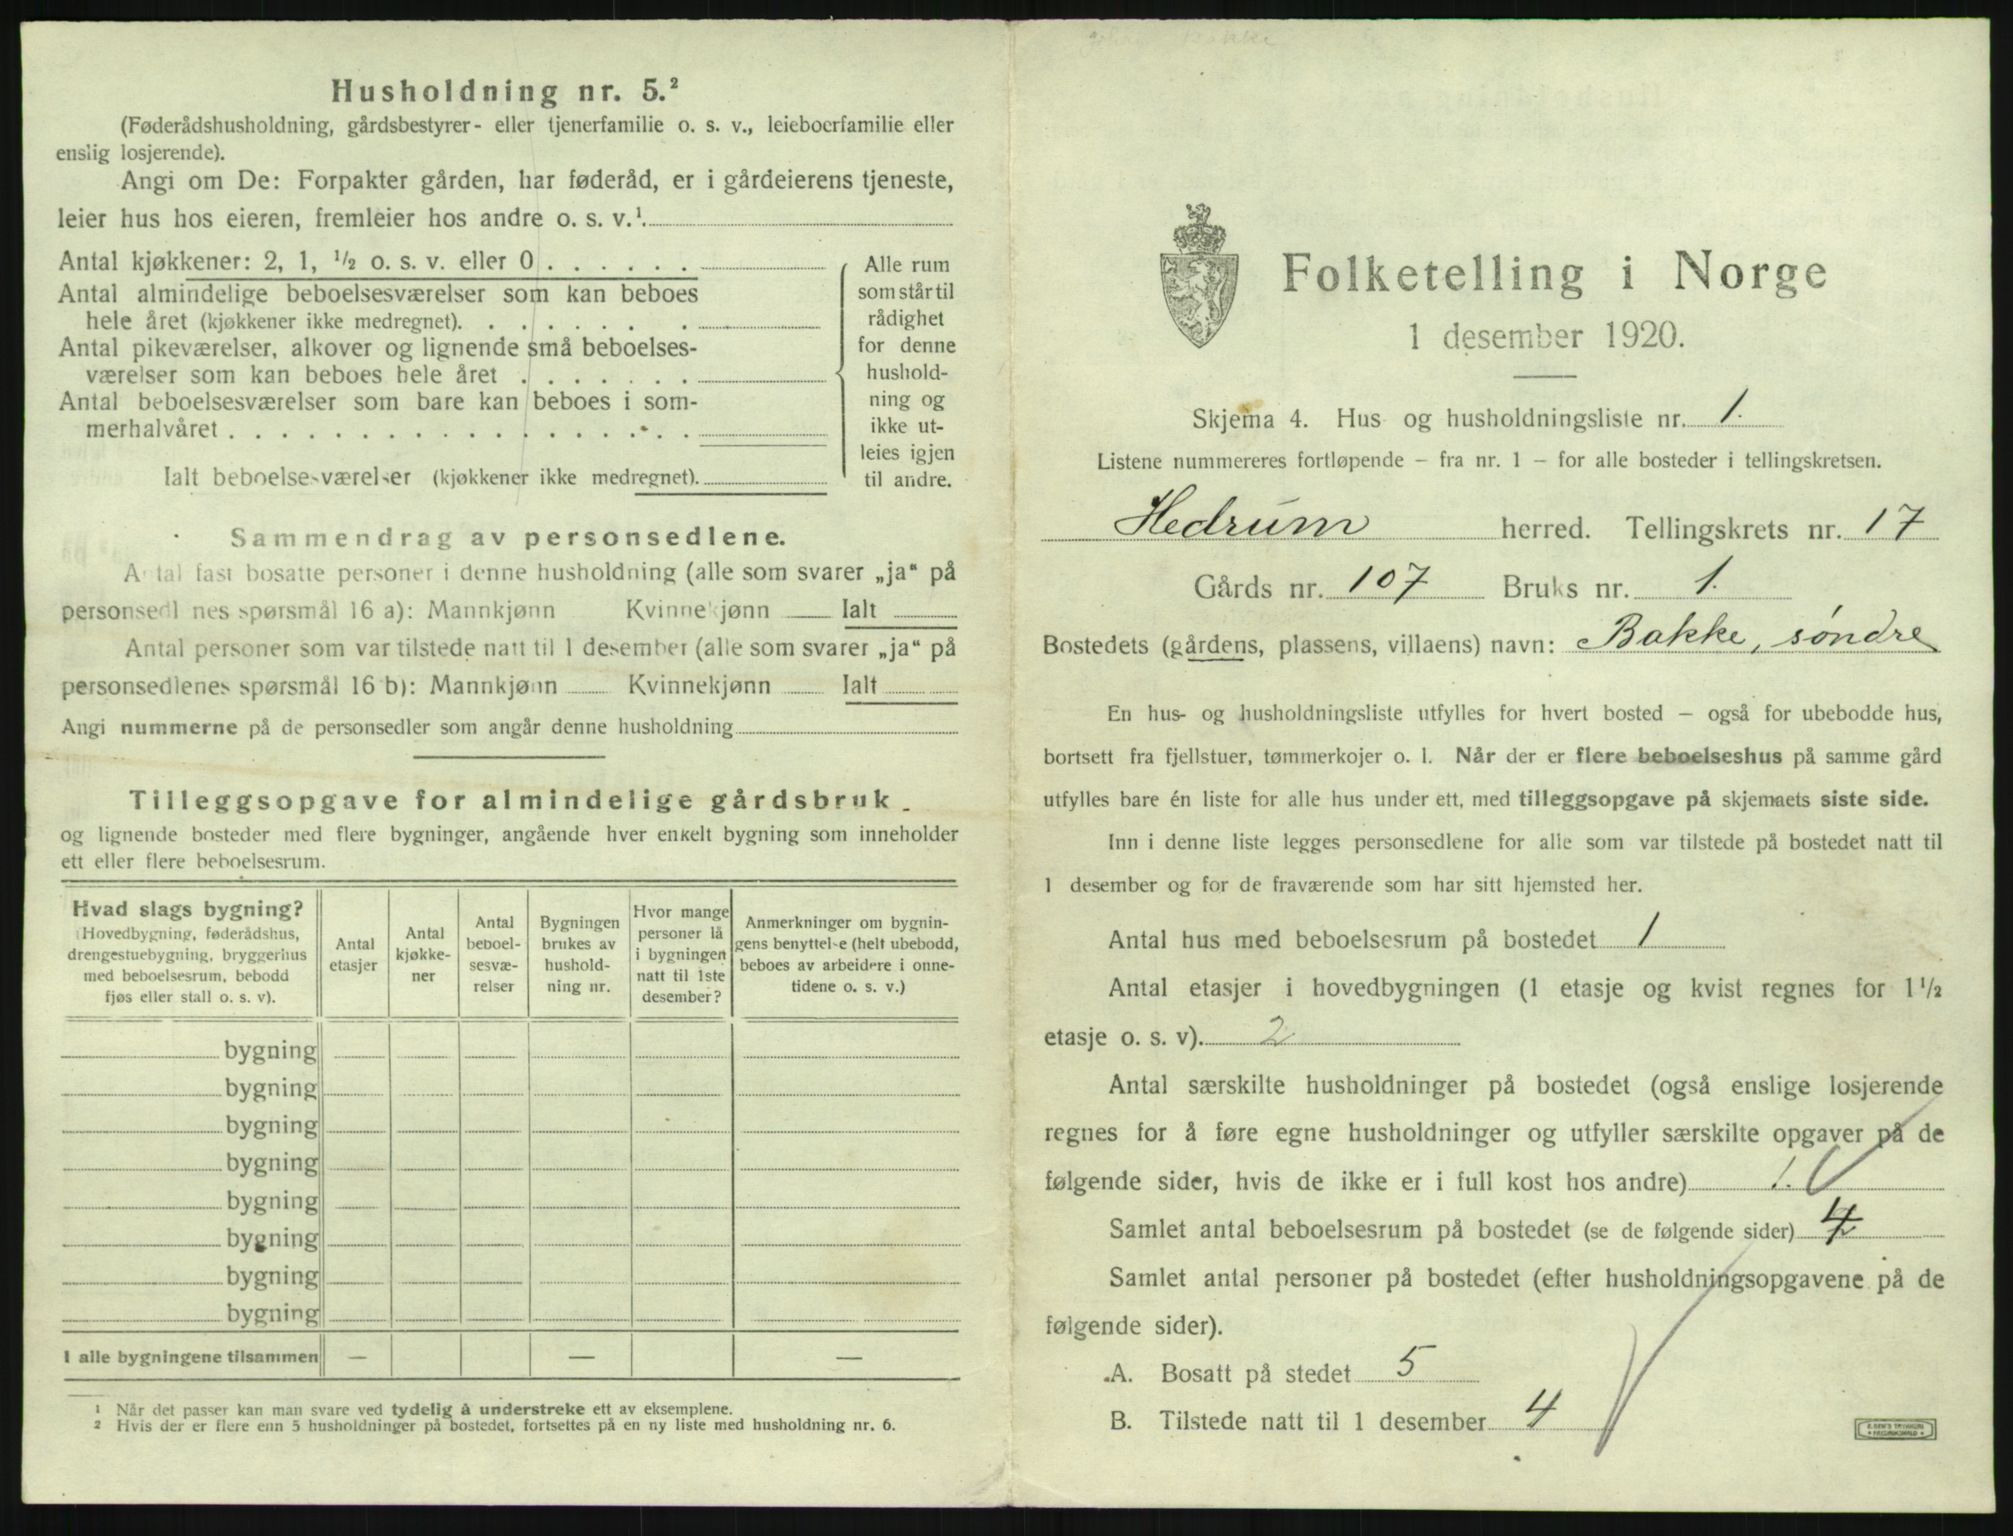 Husholdning nr. 5.²
(Føderådshusholdning, gårdsbestyrer- eller tjenerfamilie o. s. v., leieboerfamilie eller
enslig losjerende).
Angi om De: Forpakter gården, har føderåd, er i gårdeierens tjeneste,
leier hus hos eieren, fremleier hos andre o. s. v.¹.
Antal kjøkkener: 2, 1, ½ o. s. v. eller 0
Antal almindelige beboelsesværelser som kan beboes
hele året (kjøkkener ikke medregnet).
Antal pikeværelser, alkover og lignende små beboelses-
værelser som kan beboes hele året
Antal beboelsesværelser som bare kan beboes i som-
merhalvåret
Ialt beboelsesværelser (kjøkkener ikke medregnet).
Alle rum
som står til
rådighet
for denne
hushold-
ning og
ikke ut-
leies igjen
til andre.
Sammendrag av personsedlene.
Antal fast bosatte personer i denne husholdning (alle som svarer „ja“ på
personsedlenes spørsmål 16 a): Mannkjønn Kvinnekjønn Ialt
Antal personer som var tilstede natt til 1 desember (alle som svarer „ja“ på
personsedlenes spørsmål 16 b): Mannkjønn Kvinnekjønn Ialt
Angi nummerne på de personsedler som angår denne husholdning
Tilleggsopgave for almindelige gårdsbruk
og lignende bosteder med flere bygninger, angående hver enkelt bygning som inneholder
ett eller flere beboelsesrum.
Hvad slags bygning?
(Hovedbygning, føderådshus,
drengestuebygning, bryggerhus
med beboelsesrum, bebodd
fjøs eller stall o. s. v).
Antal
etasjer
Antal
kjøkke-
ner
Antal
beboel-
sesvæ-
relser
Bygningen
brukes av
hushold-
ning nr.
Hvor mange
personer lå
i bygningen
natt til 1ste
desember?
Anmerkninger om bygnin-
gens benyttelse (helt ubebodd,
beboes av arbeidere i onne-
tidene o. s. v.)
bygning
bygning
bygning
bygning
bygning
bygning
bygning
bygning
I alle bygningene tilsammen — — —
¹ Når det passer kan man svare ved tydelig å understreke ett av eksemplene.
² Hvis der er flere enn 5 husholdninger på bostedet, fortsettes på en ny liste med husholdning nr. 6.
Folketelling i Norge
1 desember 1920.
Skjema 4. Hus- og husholdningsliste nr. 1.
Listene nummereres fortløpende – fra nr. 1 – for alle bosteder i tellingskretsen.
Hedrum herred. Tellingskrets nr. 17
Gårds nr. 107 Bruks nr. 1.
Bostedets (gårdens, plassens, villaens) navn: Bakke, søndre
En hus- og husholdningsliste utfylles for hvert bosted – også for ubebodde hus,
bortsett fra fjellstuer, tømmerkojer o. l. Når der er flere beboelseshus på samme gård
utfylles bare én liste for alle hus under ett, med tilleggsopgave på skjemaets siste side.
Inn i denne liste legges personsedlene for alle som var tilstede på bostedet natt til
1 desember og for de fraværende som har sitt hjemsted her.
Antal hus med beboelsesrum på bostedet 1
Antal etasjer i hovedbygningen (1 etasje og kvist regnes for 1½
etasje o. s. v). 2
Antal særskilte husholdninger på bostedet (også enslige losjerende
regnes for å føre egne husholdninger og utfyller særskilte opgaver på de
følgende sider, hvis de ikke er i full kost hos andre) 1.
Samlet antal beboelsesrum på bostedet (se de følgende sider) 4
Samlet antal personer på bostedet (efter husholdningsopgavene på de
følgende sider).
A. Bosatt på stedet 5
B. Tilstede natt til 1 desember 4